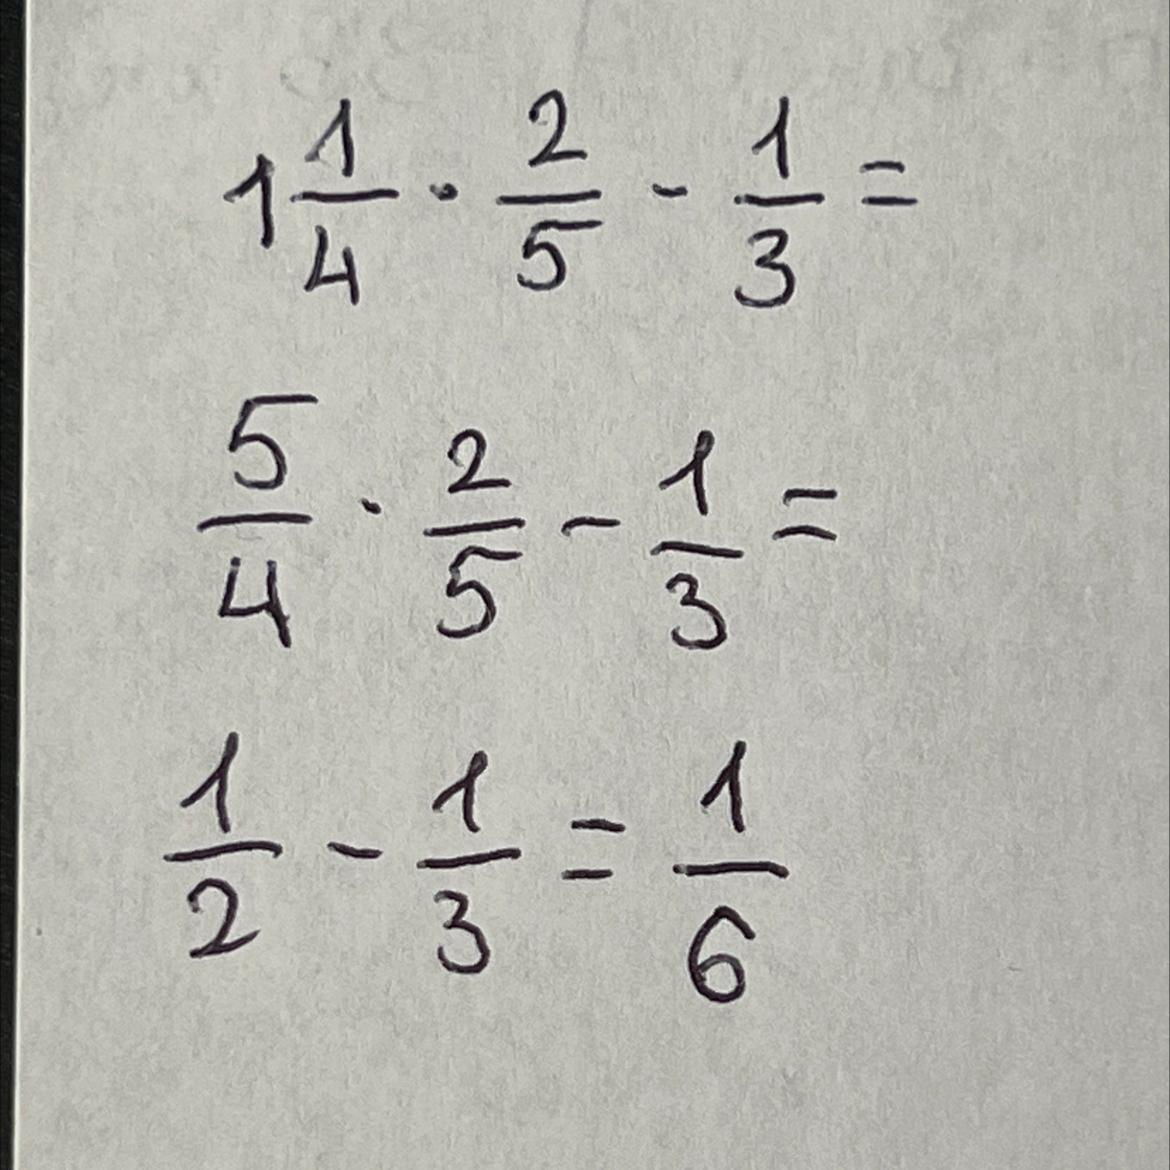 1 1/4 · 2/5 - 1/3 =
5/4 · 2/5 - 1/3 =
1/2 - 1/3 = 1/6